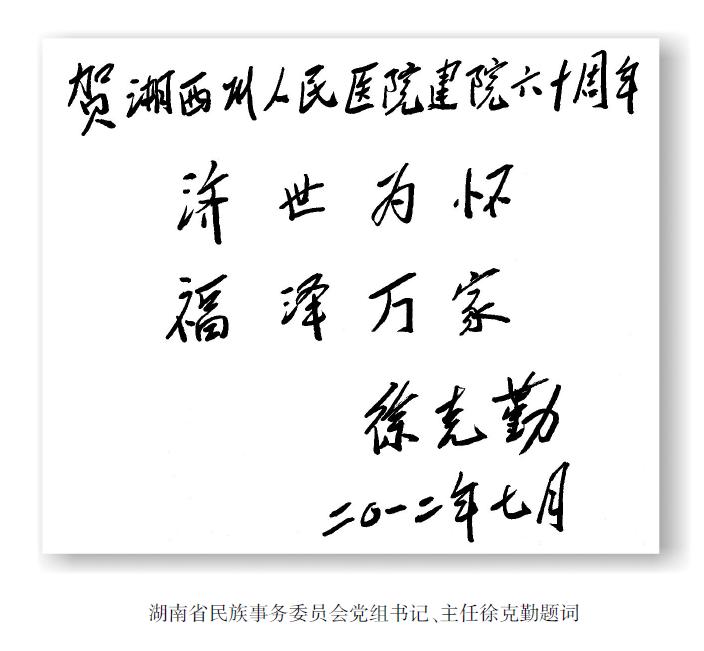 贺湘西州人民医院建院六十周年
济世为怀
福泽万家
徐克勤
二〇一二年七月
湖南省民族事务委员会党组书记、主任徐克勤题词